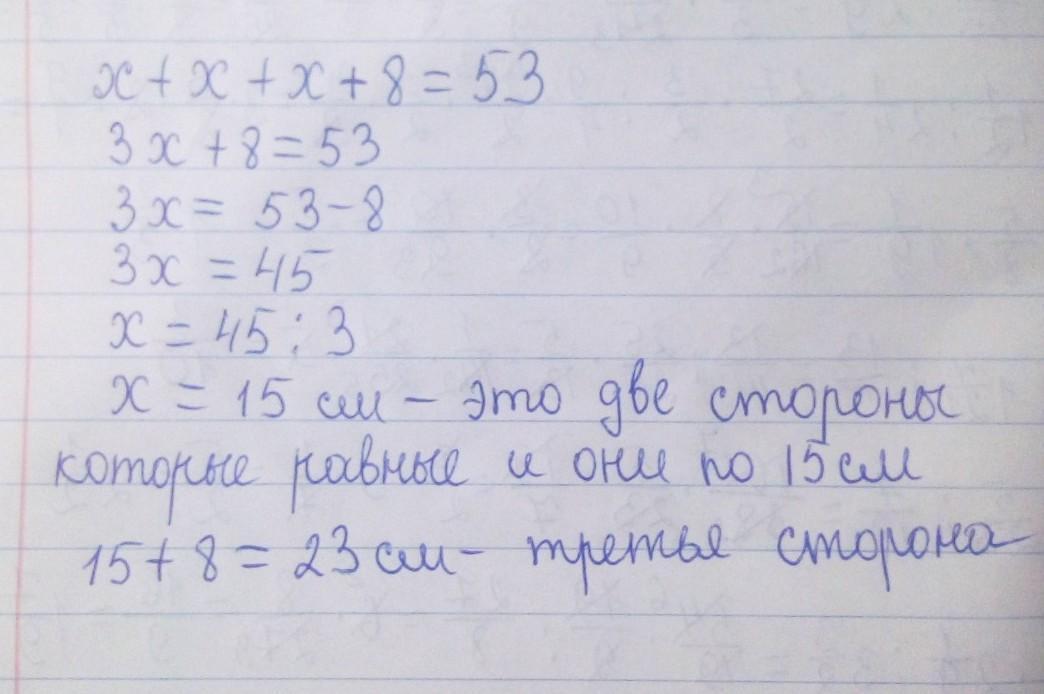 x + x + x + 8 = 53
3x + 8 = 53
3x = 53 - 8
3x = 45
x = 45 : 3
x = 15 см - это две стороны
которые равные и они по 15 см
15 + 8 = 23 см - третья сторона